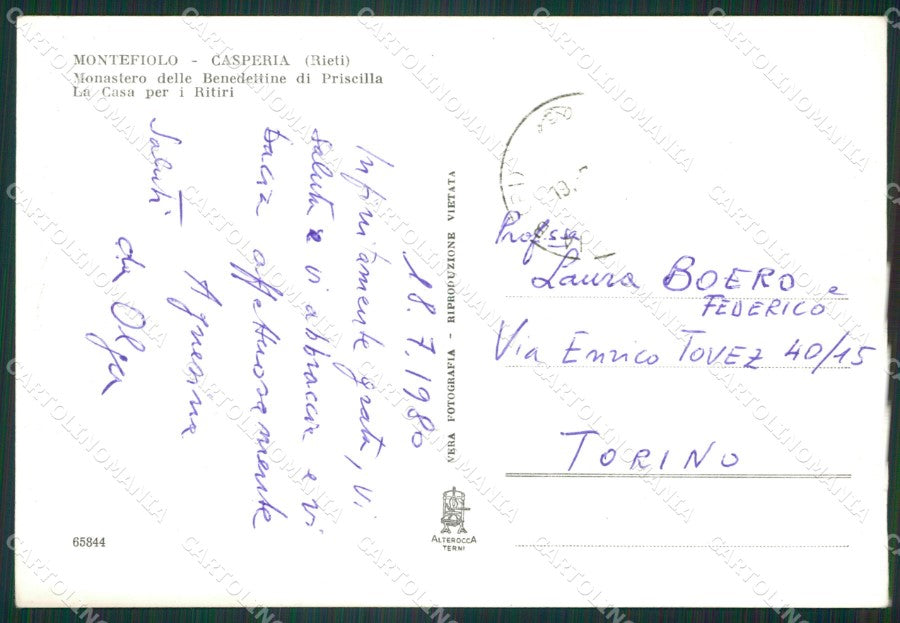 MONTEFIOLO - CASPERIA (Rieti)
Monastero delle Benedettine di Priscilla
La Casa per i Ritiri
18.7.1980
Infinitamente grata, vi
saluta e vi abbraccia e vi
bacia affettuosamente
Agnesina
Saluti
da Olga
VERA FOTOGRAFIA - RIPRODUZIONE VIETATA
Prof.ssa
Laura BOERO e
FEDERICO
Via Enrico TOVEZ 40/15
TORINO
65844
ALTEROCCA
TERNI
CARTOLINOMANIA